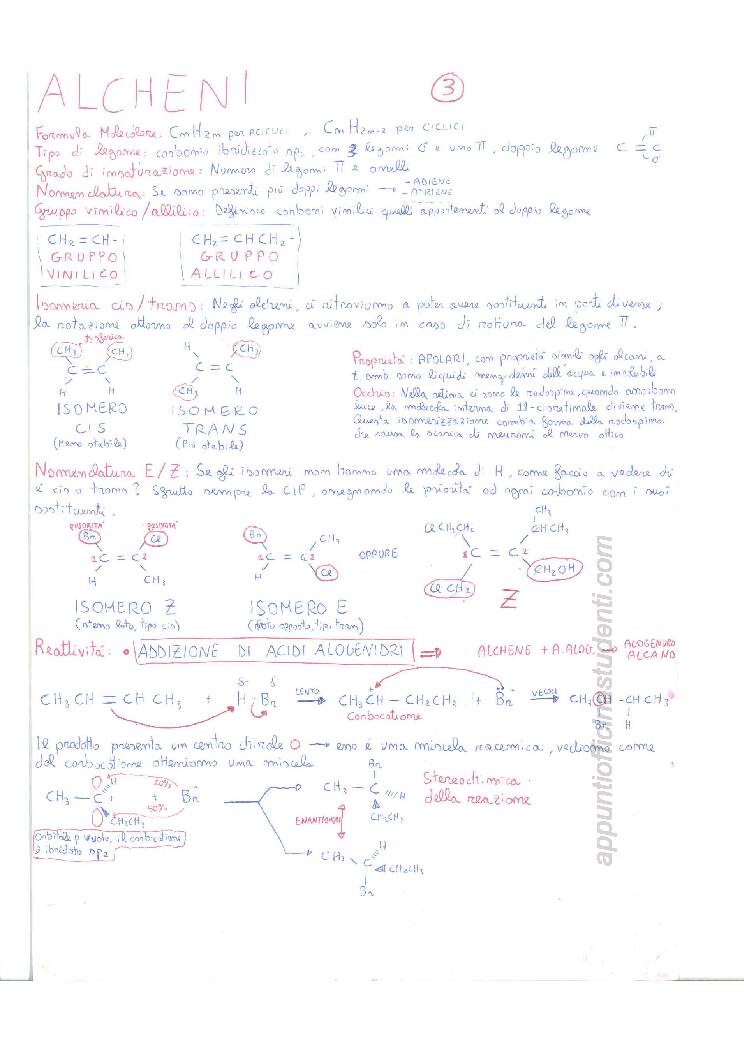 ALCHENI 3
Formula Molecolare: CnH2n per ACICLICI, CnH2n-2 per CICLICI
Tipo di legame: carbonio ibridizzato sp2, con 3 legami σ e uno π, doppio legame C=C π σ
Grado di insaturazione: Numero di legami π e anelli
Nomenclatura: Se sono presenti più doppi legami → -ADIENE -ATRIENE
Gruppo vinilico/allilico: Definisco carboni vinilici quelli appartenenti al doppio legame
CH2=CH- CH2=CHCH2-
GRUPPO GRUPPO
VINILICO ALLILICO
Isomeria cis/trans: Negli alcheni, ci ritroviamo a poter avere sostituenti in parti diverse,
la rotazione attorno al doppio legame avviene solo in caso di rottura del legame π.
CH3 CH3 H CH3
C=C C=C
H H CH3 H
ISOMERO ISOMERO
CIS TRANS
(Meno stabile) (Più stabile)
Proprietà: APOLARI, con proprietà simili agli alcani, a
t. amb. sono liquidi meno densi dell'acqua e insolubili
Occhio: Nella retina ci sono le rodopsine, quando assorbono
luce, la molecola interna di 11-cisretinale diviene trans.
Questa isomerizzazione cambia forma della rodopsina
che causa la scarica di neuroni al nervo ottico
Nomenclatura E/Z: Se gli isomeri non hanno una molecola d'H, come faccio a vedere se
è cis o trans? Sfrutto sempre la CIP, assegnando le priorità ad ogni carbonio con i suoi
sostituenti.
PRIORITA' PRIORITA'
Br Cl Br CH3 ClCH2CH2 CH3 CHCH3
1C=C2 1C=C2 OPPURE 1C=C2
H CH3 H Cl ClCH2 CH2OH
ISOMERO Z ISOMERO E Z
(stesso lato, tipo cis) (lato opposto, tipo trans)
Reattività: • ADDIZIONE DI ACIDI ALOGENIDRI ⇒ ALCHENE + A.ALOG. → ALOGENURO ALCANO
δ+ δ-
CH3CH=CHCH3 + H-Br LENTO → CH3CH+-CH2CH3 + Br- VELOCE → CH3CH-CHCH3
Carbocatione Br H
Il prodotto presenta un centro chirale O → esso è una miscela racemica, vediamo come
dal carbocatione otteniamo una miscela
CH3-C+ H CH2CH3 50% + 50% Br-
Br
CH3-C H CH2CH3
ENANTIOMERI
CH3 C H CH2CH3
Br
Stereochimica
della reazione
Orbitale p vuoto, il carbocatione
è ibridato sp2
appuntiofficinastudenti.com